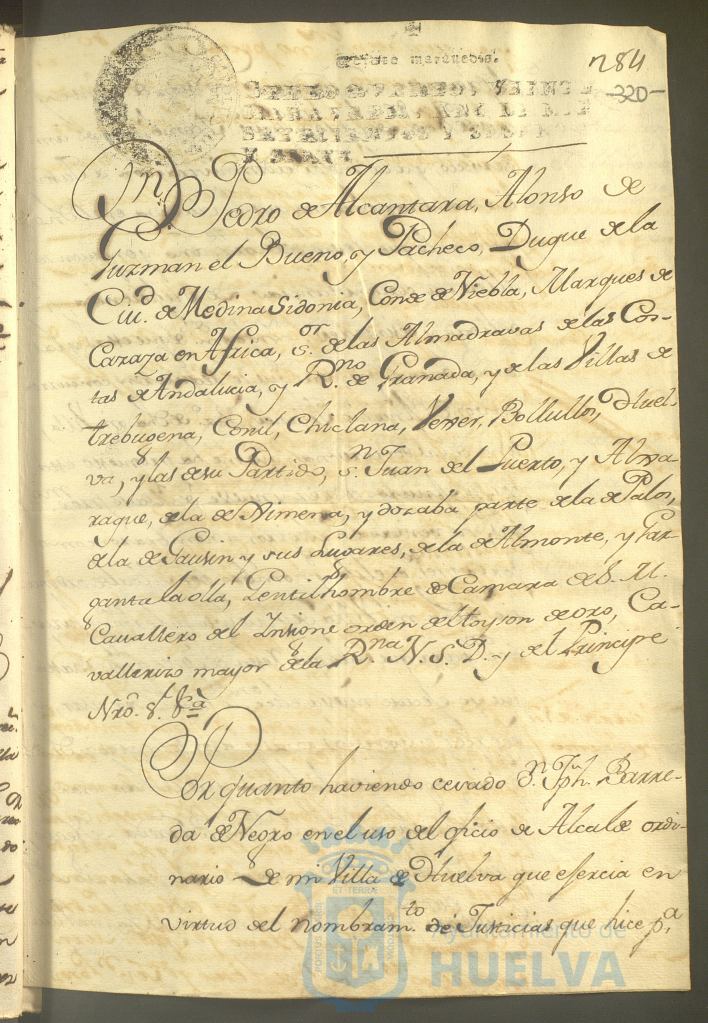 284
320
Veinte maravedis.
SELLO QVARTO, VEINTE
MARAVEDIS, AÑO DE MIL
SETECIENTOS Y
Dn. Pedro de Alcantara, Alonso de
Guzman el Bueno, y Pacheco, Duque de la
Ciud. de Medina Sidonia, Conde de Niebla, Marques de
Cazaza en Africa, sor. de las Almadravas de las Cos-
tas de Andalucia, y Rno. de Granada, y de las Villas de
trebugena, Conil, Chiclana, Vexer, Bollullos, Huel-
va, y las de su Partido, sn. Juan del Puerto, y Alxa-
raque, de la de Ximena, y dozaba parte de la de Palos,
de la de Gausin y sus Lugares, de la de Almonte, y Gar-
ganta la olla, Gentilhombre de Camara de S. M.
Cavallero del Insigne orden del toyson de oro, Ca-
vallerizo mayor de la Rna. N. S. D. y del Principe
Nro. S. &ca
Por quanto haviendo cevado Dn. Jph. Barre-
da de Negro en el uso del oficio de Alcalde ordi-
nario de mi Villa de Huelva que esercia en
virtud del nombramto. de Justicias que hice pa.
Ayuntamiento de
HUELVA